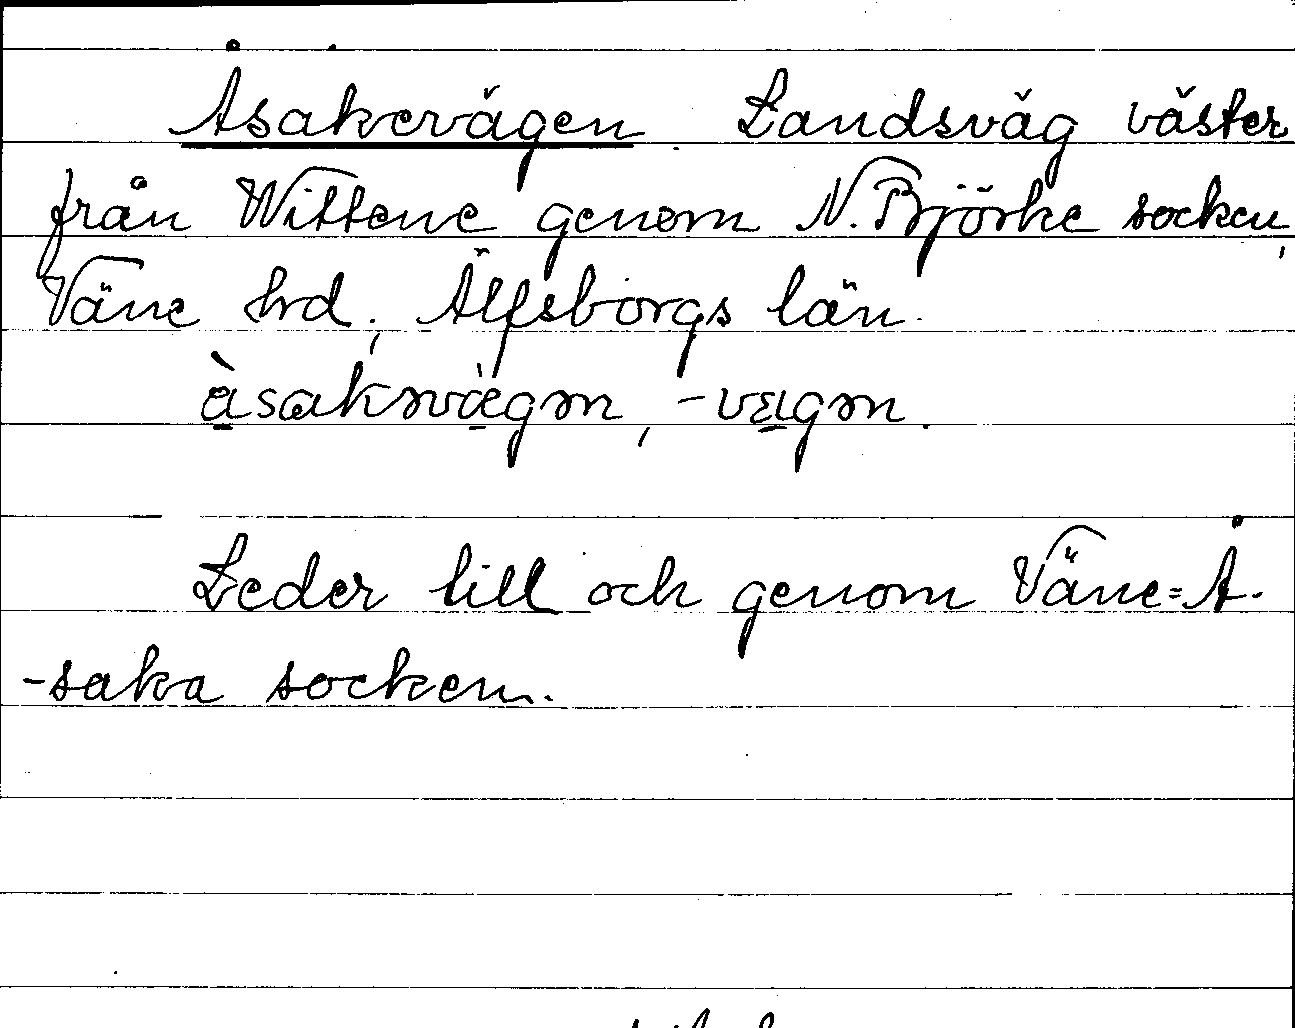 Åsakevägen Landsväg väster
från Wittene genom N. Björke socken,
Väne hrd, Älfsborgs län.
Leder till och genom Väne=Å-
-saka socken.